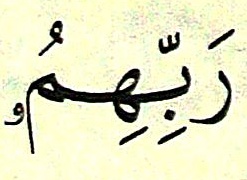 رَبِّهِمُۥ